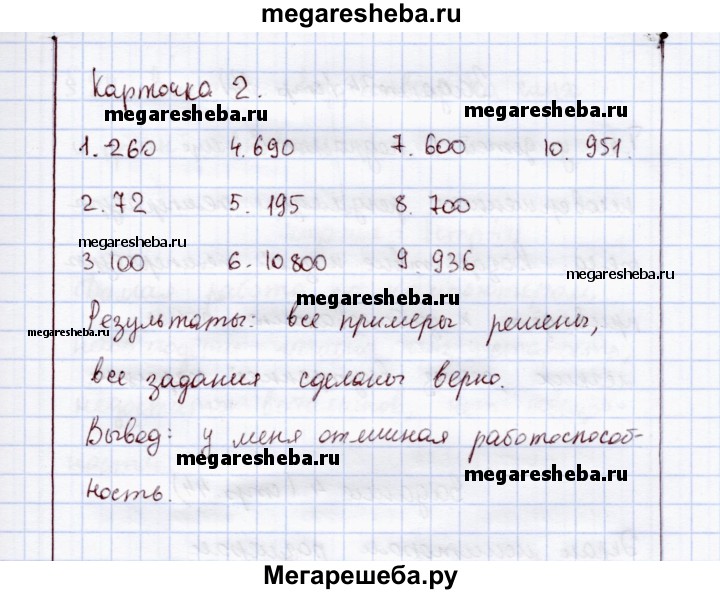 megaresheba.ru
Карточка 2.
megaresheba.ru megaresheba.ru
1. 260 4. 690 7. 600 10. 951.
2. 72 5. 195 8. 700
megaresheba.ru
3. 100 6. 10800 9. 936 megaresheba.ru
megaresheba.ru
Результаты: все примеры решены,
megaresheba.ru megaresheba.ru
все задания сделаны верно.
Вывод: у меня отличная работоспособ-
megaresheba.ru megaresheba.ru
ность.
Мегарешеба.ру